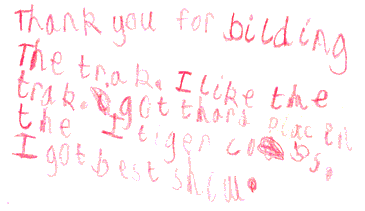 Thank you for bilding
The trak. I like the
trak. I got thard plac in
the tiger cobs.
I got best shill.